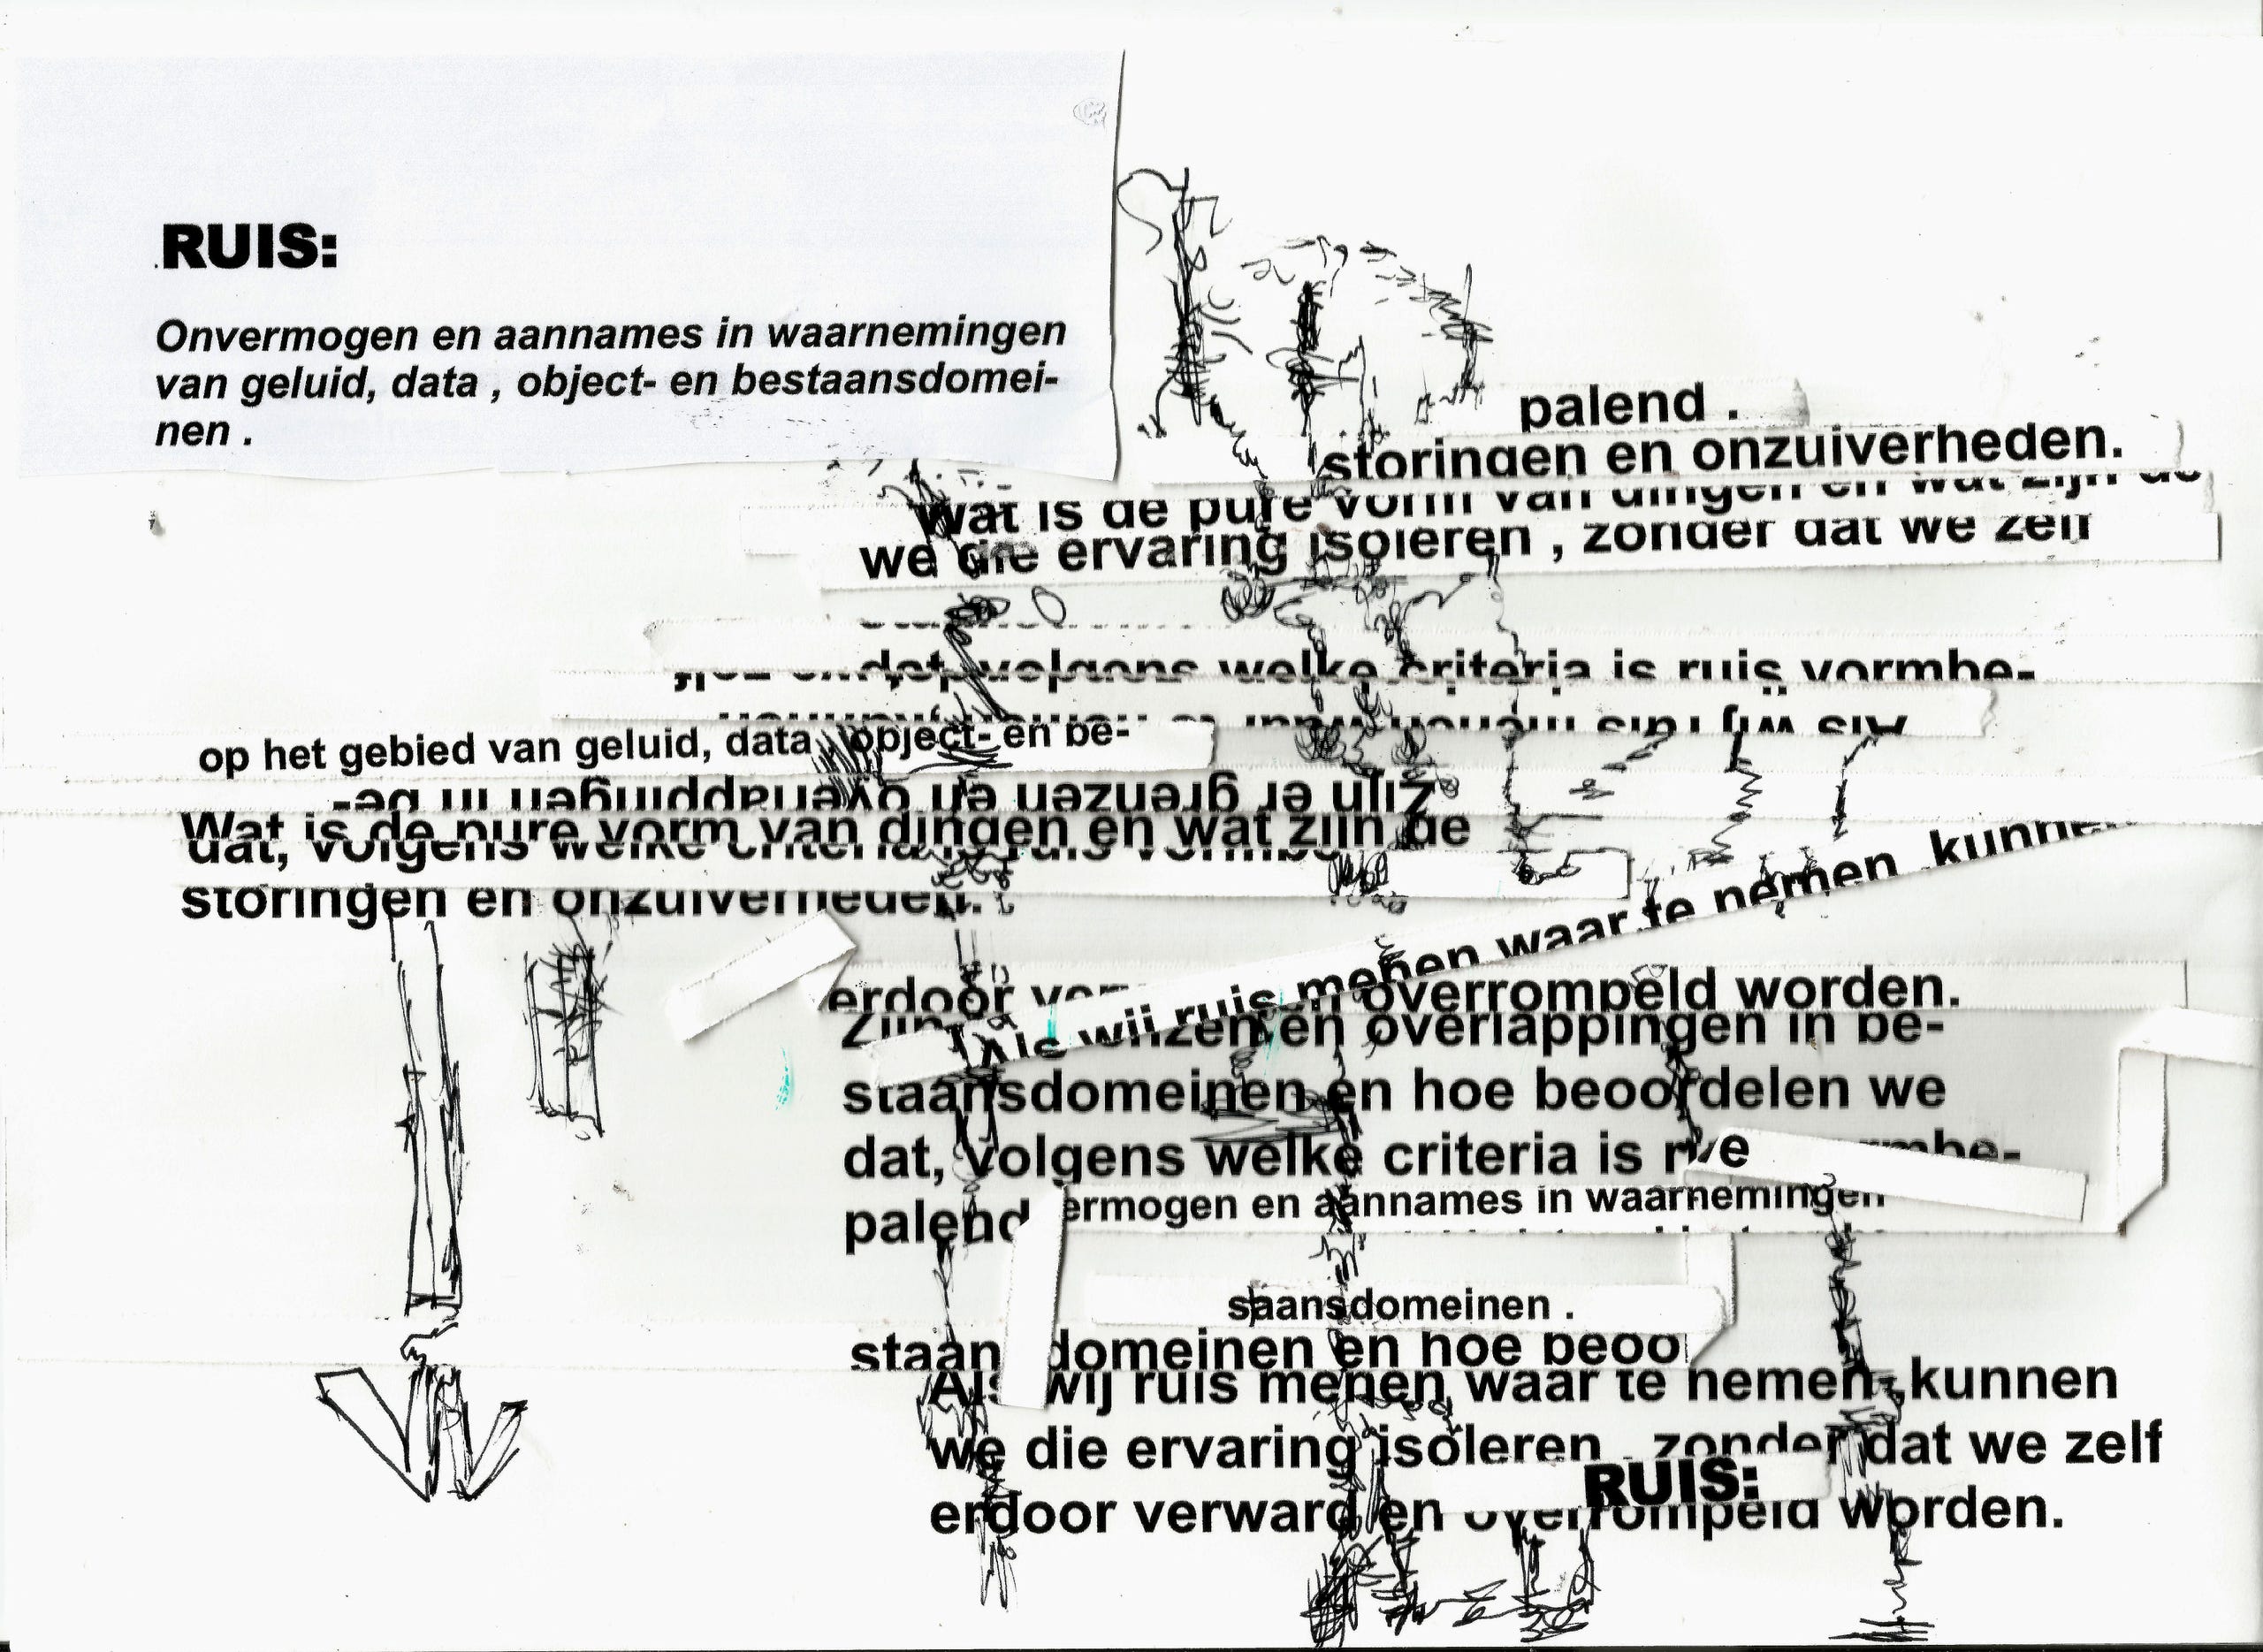 RUIS:
Onvermogen en aannames in waarnemingen
van geluid, data , object- en bestaansdomei-
nen .
palend .
storingen en onzuiverheden.
Wat is de pure vorm van dingen en wat zijn de
we die ervaring isoleren , zonder dat we zelf
dat, volgens welke criteria is ruis vormbe-
op het gebied van geluid, data, object- en be-
Zijn er grenzen en overlappingen in be-
Wat is de pure vorm van dingen en wat zijn de
dat, volgens welke criteria is ruis vormbe-
storingen en onzuiverheden.
Als wij ruis menen waar te nemen , kunnen
erdoor overrompeld worden.
Zijn en overlappingen in be-
staansdomeinen en hoe beoordelen we
dat, volgens welke criteria is
palend ermogen en aannames in waarnemingen
saansdomeinen .
staansdomeinen en hoe beoo
Als wij ruis menen waar te nemen , kunnen
we die ervaring isoleren , zonder dat we zelf
RUIS:
erdoor verward en overrompeld worden.